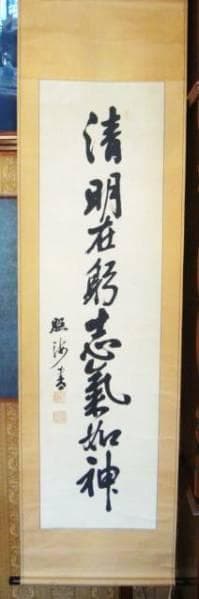 清明在躬志氣如神
照海書